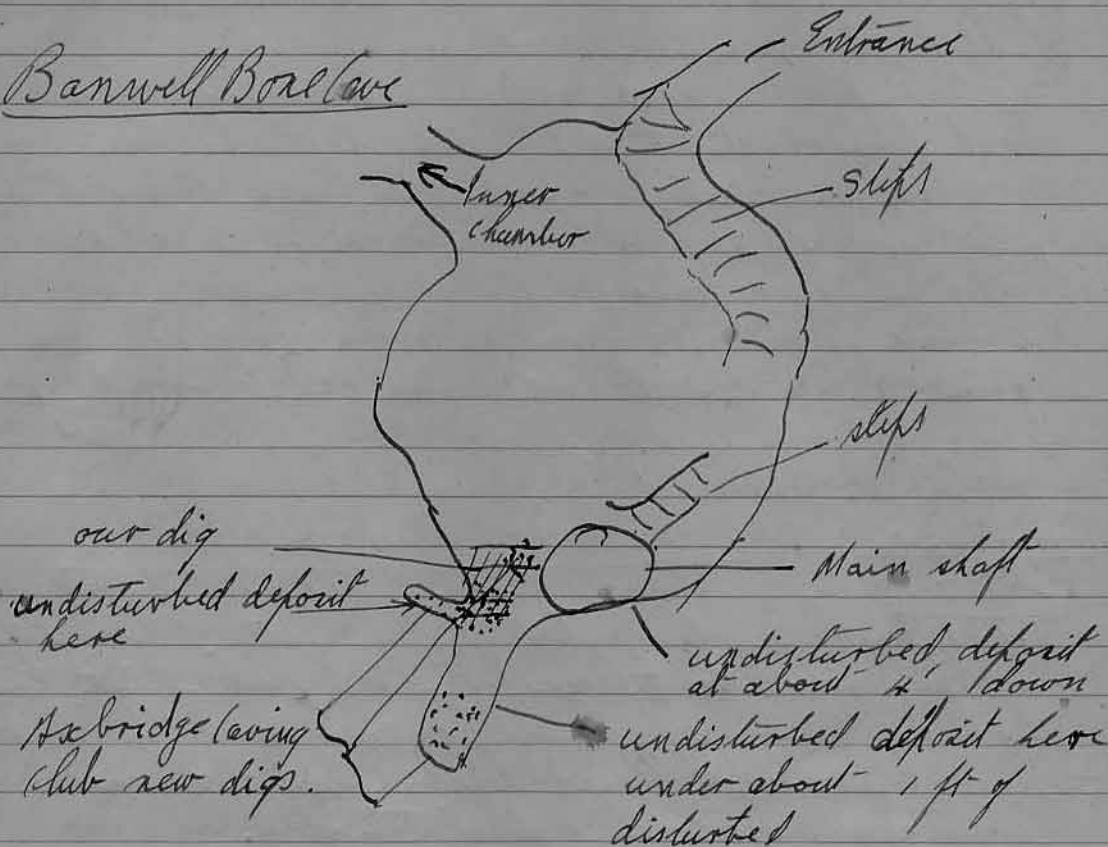 Entrance
Banwell Bone Cave
Inner
chamber
Steps
steps
our dig
undisturbed deposit
here
Main shaft
undisturbed deposit
at about 4' down
Axbridge Caving
Club new digs.
undisturbed deposit here
under about 1 ft of
disturbed